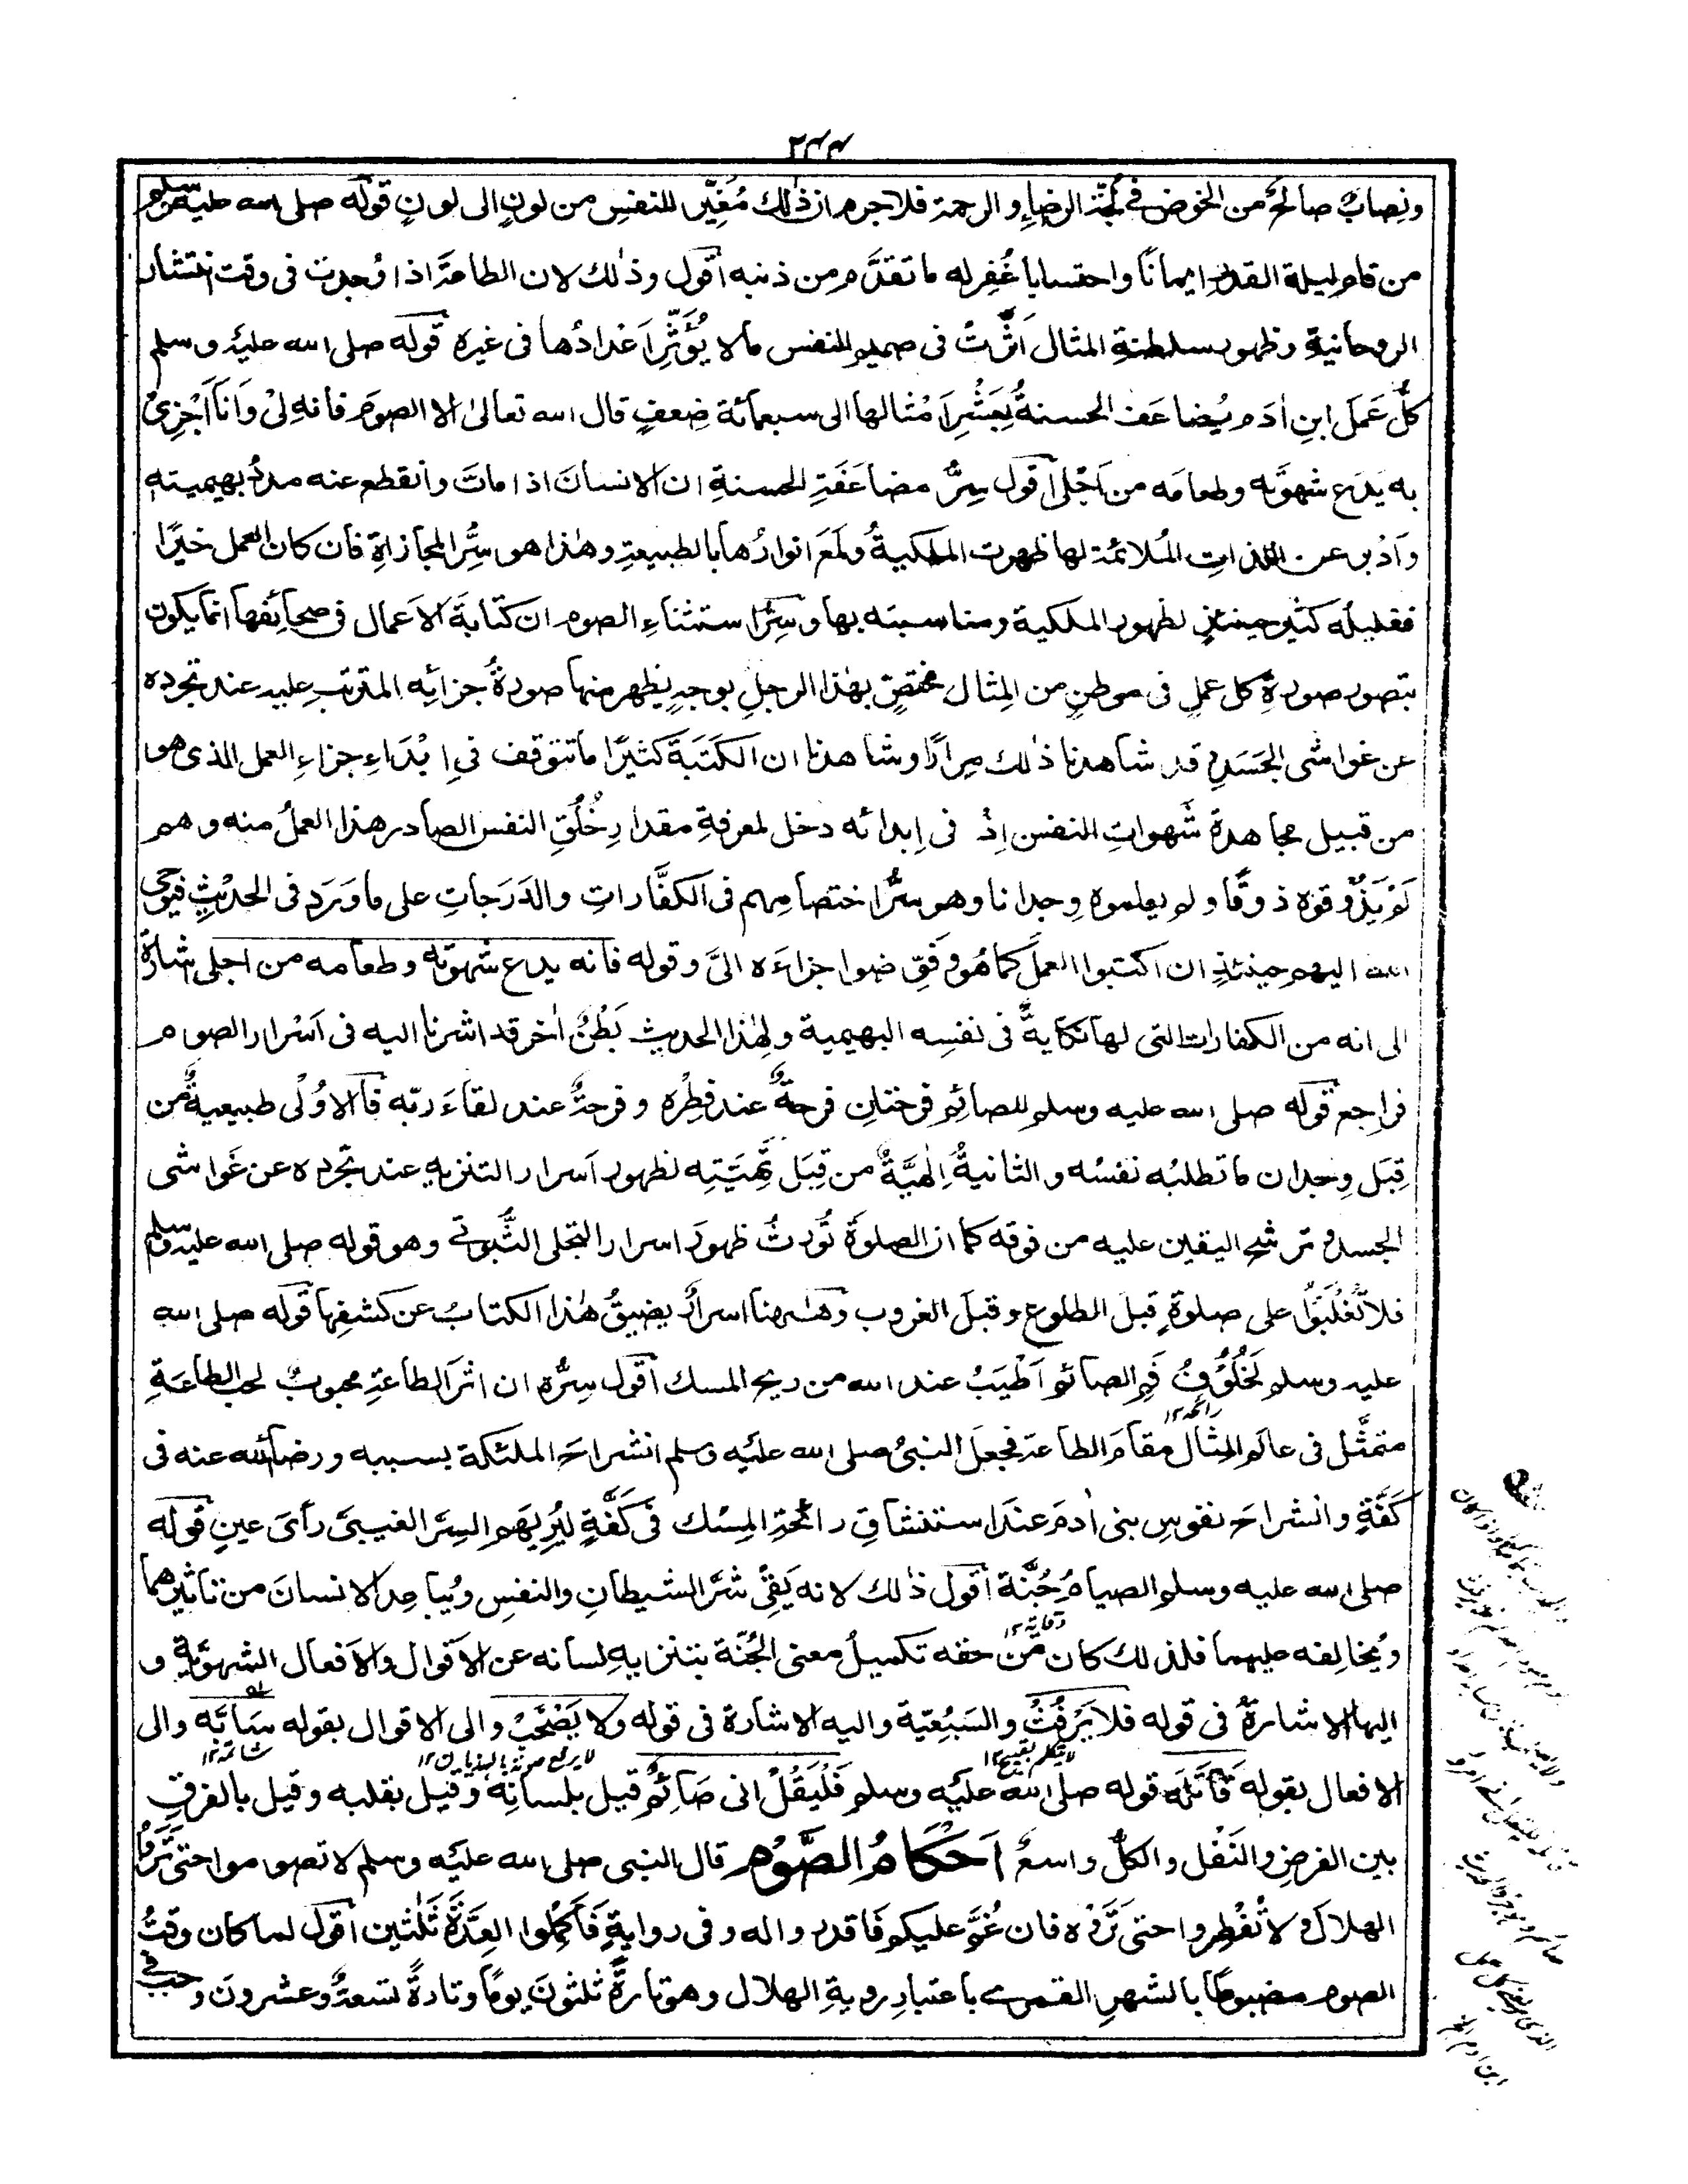 ونِصابٌ صالحٌ من الخوض في لُجّة الرضاءِ والرحمة فلا جرم ان ذٰلك مُغَيِّر للنفسِ من لونٍ الى لونٍ قوله صلى الله عليه وسلم
من قام ليلة القدر ايماناً واحتسابا غُفِر له ما تقدَّم من ذنبه اقول وذٰلك لان الطاعة اذا وُجدت في وقت انتشار
الروحانيةِ وظهور سلطنةِ المثال اَثَّرتْ في صميم النفس ما لا يُؤَثِّر اَعْدادُها في غيره قوله صلى الله عليه وسلم
كلُّ عَمَلِ ابنِ اٰدَم يُضاعَف الحسنةُ بِعَشْرِ اَمْثالها الى سبعمائة ضِعفٍ قال الله تعالىٰ الا الصومَ فانه لِىْ وَاَنَا اَجْزِىْ
به يَدَع شهوتَه وطعامَه من اَجْلى اقول سِرُّ مضاعَفَةِ الحسنةِ ان الانسانَ اذا ماتَ وانقطع عنه مددُ بهيميته
وَاَدْبر عن اللذاتِ المُلائمة لها ظهرت الملكيةُ ولَمَعَ انوارُها بالطبيعةِ وهٰذا هو سِرُّ المجازاةِ فان كان العمل خيرًا
فقليلُه كثير حينئذٍ لظهور الملكية ومناسبته بها وسِرُّ استثناءِ الصوم ان كتابةَ الاَعمال في صحائفها انما يكون
بتصور صورةِ كل عملٍ في موطنٍ من المِثال مختصٍ بهٰذا الرجلِ بوجهٍ يظهر منها صورةُ جزائه المترتبِ عليه عند تجرده
عن غواشى الجَسَدِ وقد شاهدنا ذٰلك مِرارًا وشاهدنا ان الكَتَبَةَ كثيرًا ما تتوقف في اِبْدَاءِ جزاءِ العمل الذى هو
من قبيل مجاهدةِ شَهواتِ النفس اِذْ في اِبدائه دخل لمعرفةِ مقدارِ خُلُقِ النفس الصادر هذا العملُ منه وهم
لَمْ يَذُوقوه ذوقًا ولم يعلموه وِجدانا وهو سرُّ اختصامِهم في الكفَّاراتِ والدَرَجاتِ على ما وَرَد في الحديْثِ فيوحى
الله اليهم حينئذٍ ان اكتبوا العملَ كما هُو وفَوِّضوا جزاءَه الىَّ وقوله فانه يدع شهوته وطعامه من اجلى اشارةٌ
الى انه من الكفارات التى لها نكايةٌ فى نفسِه البهيمية ولِهٰذا الحديث بَطْنٌ اٰخر قد اشرنا اليه فى اَسْرار الصوم
فراجع قوله صلى الله عليه وسلم للصائم فرحتانِ فرحةٌ عند فِطْره وفرحةٌ عند لقاءَ ربّه فالاُوْلٰى طبيعيةٌ من
قِبَل وِجدان ما تطلبُه نفسُه والثانيةُ اِلٰهيَّةٌ من قِبَل تَهَيُّئِه لظهور اَسرار التنزيه عند تجرده عن غَواشى
الجسد وترشح اليقين عليه من فوقه كما ان الصلوٰةَ تُورثُ ظهورَ اسرار التجلى الثُّبوتى وهو قوله صلى الله عليه وسلم
فلا تُغْلَبُوا على صلوٰةٍ قبلَ الطلوع وقبلَ الغروب وهٰهنا اسرارٌ يضيقُ هٰذا الكتابُ عن كشفِها قوله صلى الله
عليه وسلم لَخُلُوْفُ فَمِ الصائم اَطْيَبُ عند الله من ريح المسك اقول سِرُّه ان اثرَ الطاعةِ محبوبٌ لحب الطاعَةِ
رائحہ ١٢
متمثَّل فى عالم المثال مقامَ الطاعة فجعل النبىُ صلى الله عليه وسلم انشراحَ الملٰئكة بسببه ورضاَ الله عنه فى
كفَّةٍ وانشراحَ نفوسِ بنى اٰدمَ عند استنشاقِ رائحةِ المِسْك فى كفَّةٍ ليُرِيَهم السِرَّ الغيبىَّ رأىَ عينٍ قوله
صلى الله عليه وسلم الصيامُ جُنَّة اقول ذٰلك لانه يَقِىْ شَرَّ الشيطانِ والنفسِ ويُباعِد الانسانَ من تاثيرهما
وقایۃ ١٢
ويُخالِفه عليهما فلذلك كان من حقه تكميلُ معنى الجُنّة بتنزيهِ لسانه عن الاَقوال والاَفعال الشهوَّيةِ و
اليها الاشارةُ فى قوله فلا يَرْفُثْ والسَبُعيّة واليه الاشارة فى قوله ولا يَصْخَبْ والى الاقوال بقوله سَابَّه والى
لا یتکلم بقبیح ١٢ لا یرفع صوته بالہذیان ١٢ شاتمہ ١٢
الافعال بقوله قَاتَلَه قوله صلى الله عليه وسلم فَلْيَقُلْ انى صَائمٌ قيل بلسانه وقيل بقلبه وقيل بالفرقِ
بين الفرضِ والنَفْل والكلُّ واسعٌ اَحْكَامُ الصَّوْمِ قال النبى صلى الله عليه وسلم لا تصوموا حتى تَرَوُا
الهلالَ ولا تُفْطِروا حتى تَرَوْه فان غُمَّ عليكم فاقدروا له وفى روايةٍ فَاَكْمِلُوا العِدَّةَ ثَلٰثين اقول لما كان وقتُ
الصوم مضبوطًا بالشهرِ القمرى باعتبارِ رويةِ الهلال وهو تارةً ثلثونَ يومًا وتارةً تسعةٌ وعشرونَ وجب فى